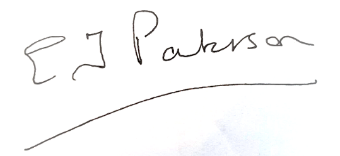 E J Paterson